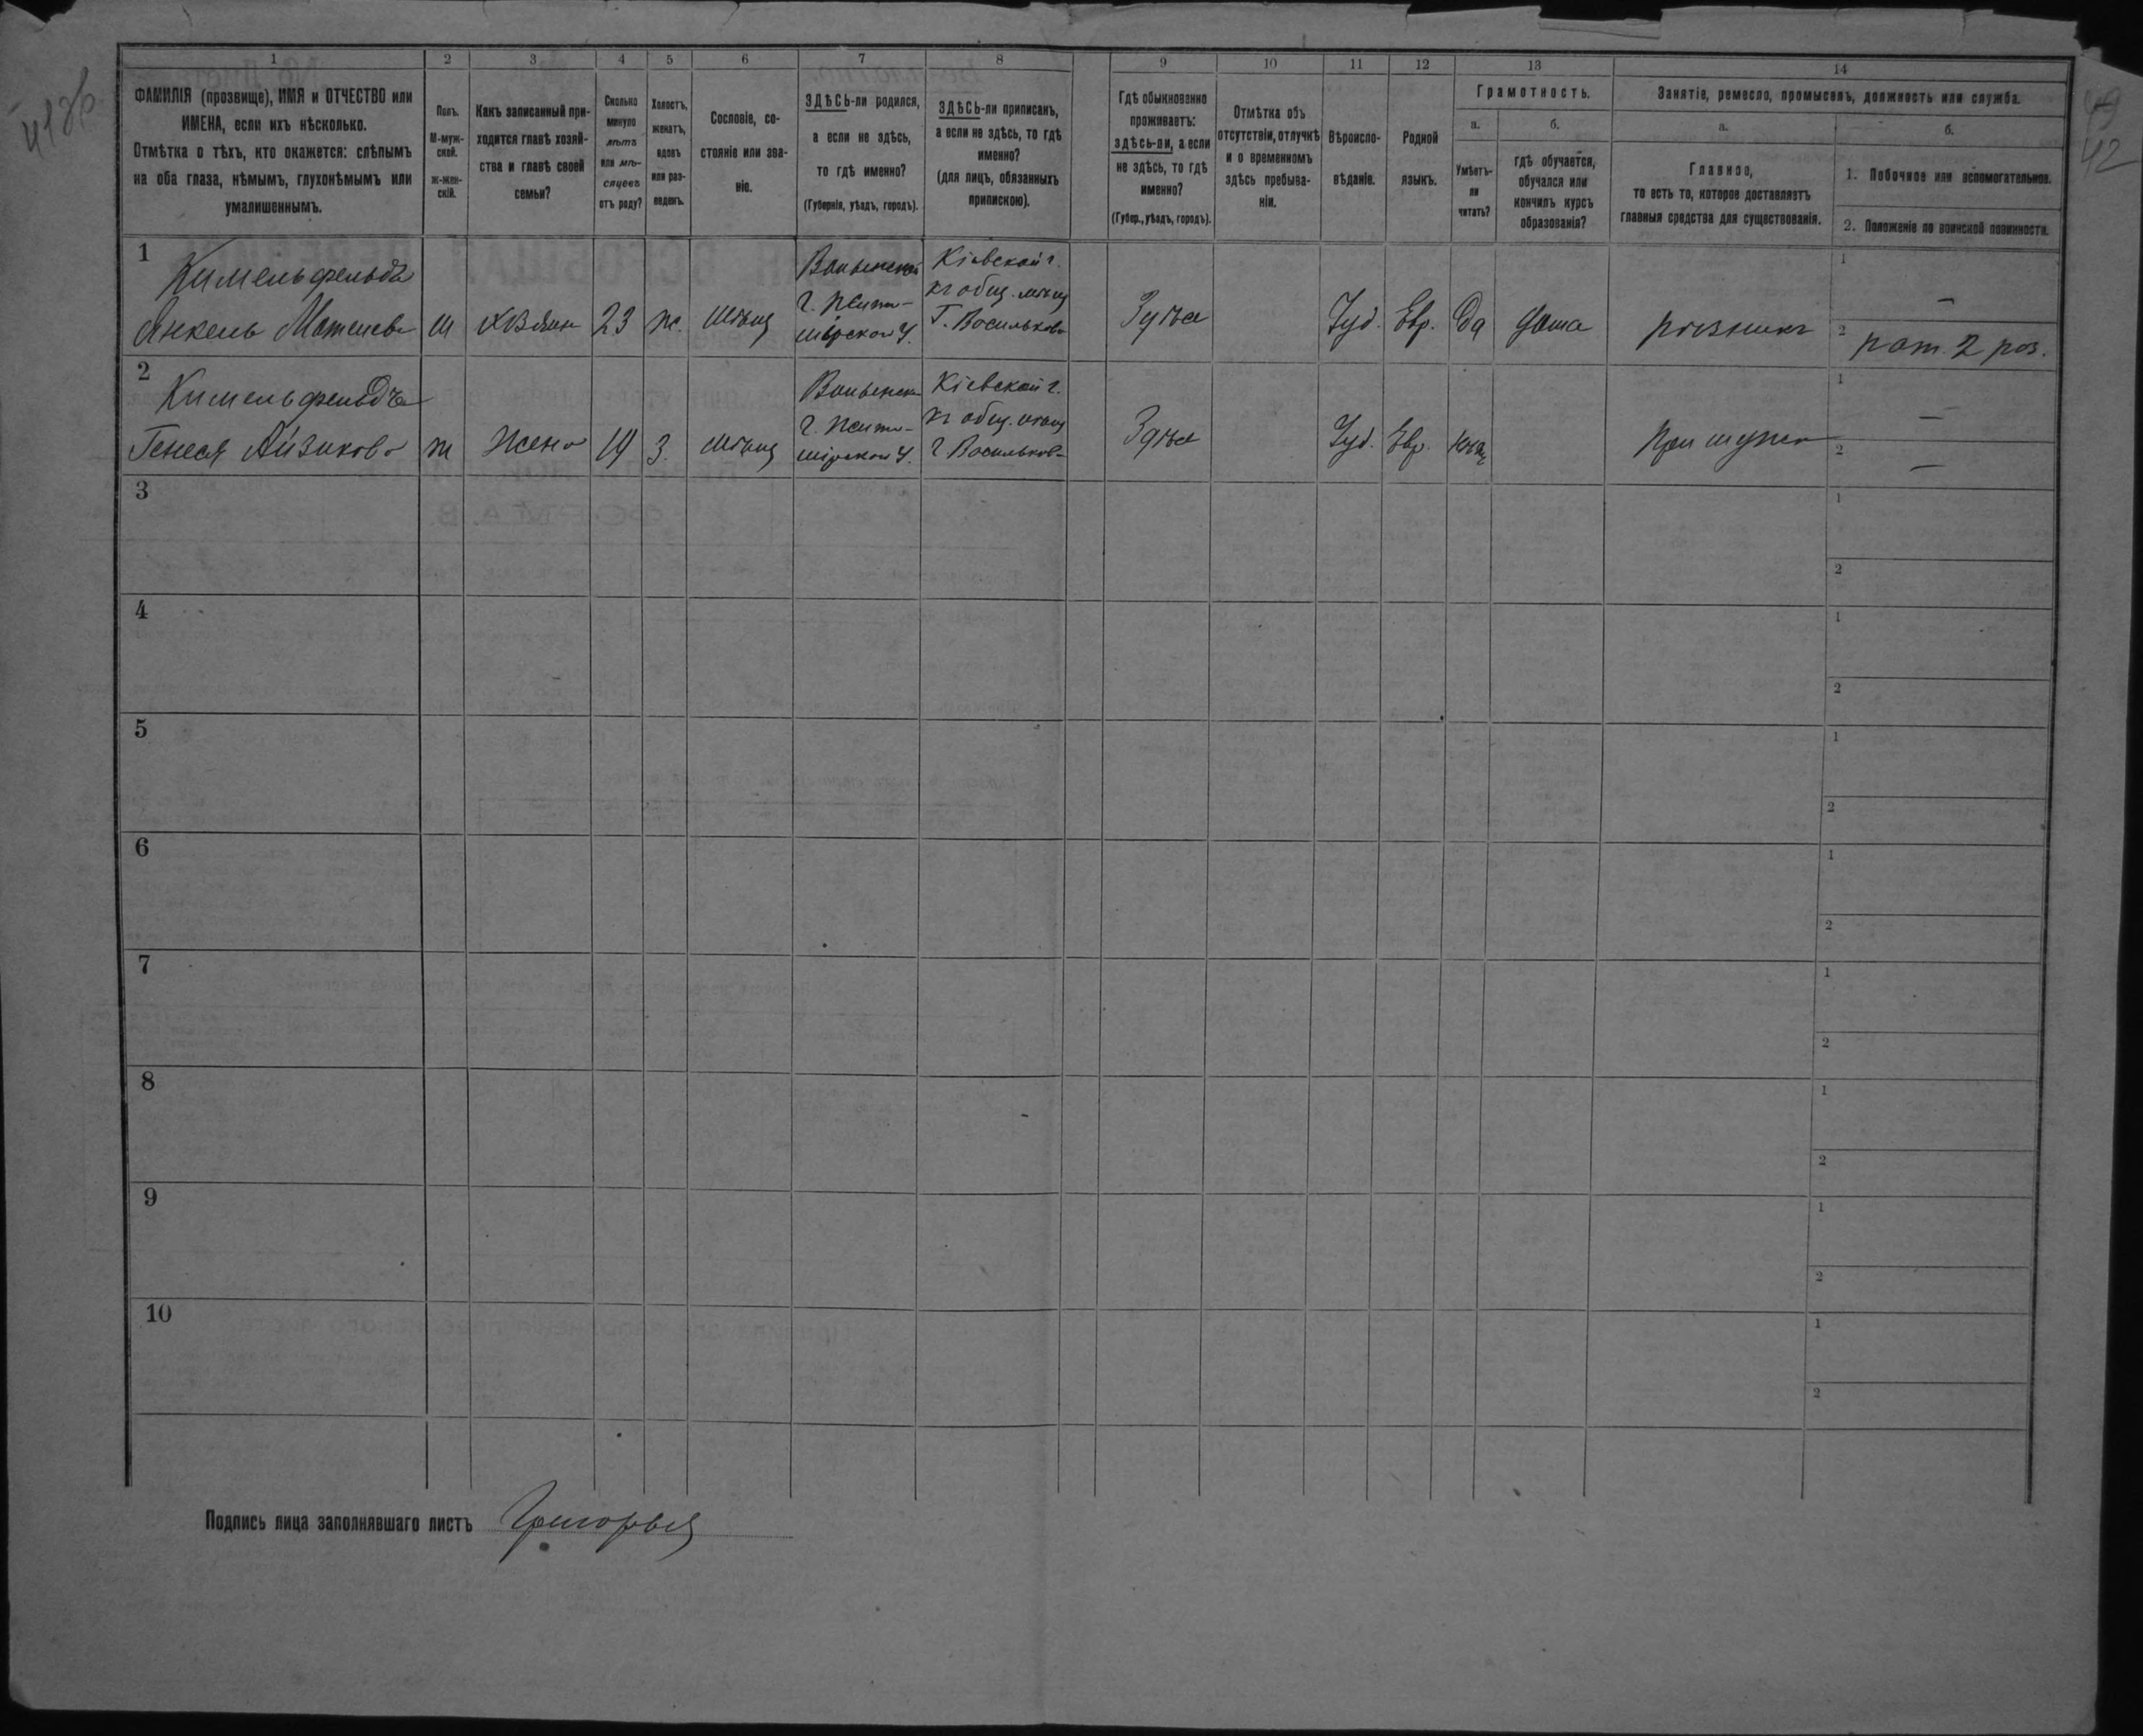 41 об
49
42
1 2 3 4 5 6 7 8 9 10 11 12 13 14
ФАМИЛІЯ (прозвище), ИМЯ и ОТЧЕСТВО или
ИМЕНА, если ихъ нѣсколько.
Отмѣтка о тѣхъ, кто окажется: слѣпымъ
на оба глаза, нѣмымъ, глухонѣмымъ или
умалишеннымъ.
Полъ.
М-муж-
ской.
ж-жен-
скій.
Какъ записанный при-
ходится главѣ хозяй-
ства и главѣ своей
семьи?
Сколько
минуло
лѣтъ
или мѣ-
сяцевъ
отъ роду?
Холостъ,
женатъ,
вдовъ
или раз-
веденъ.
Сословіе, со-
стояніе или зва-
ніе.
ЗДѢСЬ-ли родился,
а если не здѣсь,
то гдѣ именно?
(Губернія, уѣздъ, городъ).
ЗДѢСЬ-ли приписанъ,
а если не здѣсь, то гдѣ
именно?
(для лицъ, обязанныхъ
припискою).
Гдѣ обыкновенно
проживаетъ:
здѣсь-ли, а если
не здѣсь, то гдѣ
именно?
(Губер., уѣздъ, городъ).
Отмѣтка объ
отсутствіи, отлучкѣ
и о временномъ
здѣсь пребыва-
ніи.
Вѣроиспо-
вѣданіе.
Родной
языкъ.
Грамотность.
а.
Умѣетъ-
ли
читать?
б.
гдѣ обучается,
обучался или
кончилъ курсъ
образованія?
Занятіе, ремесло, промыселъ, должность или служба.
а.
Главное,
то есть то, которое доставляетъ
главныя средства для существованія.
б.
1. Побочное или вспомогательное.
2. Положеніе по воинской повинности.
1
Кимельфельдъ
Янкель
м
хозяин
23
ж.
мѣщ
Волынской
г. Жито-
мірскои у.
Кіевской г.
къ общ. мѣщ
Г. Василькова
Здѣсь
Іуд.
Евр.
Да
дома
рѣзникъ
1 —
2 рат. 2 раз.
2
Кимельфельдъ
Генеся Айзикова
ж
жена
19
З.
мѣщ
Волынск
г. Жито-
мірскои у.
Кіевской г.
къ общ. мѣщ
г. Василькова
Здѣсь
Іуд.
Евр.
При мужѣ
1 —
2 —
3
1
2
4
1
2
5
1
2
6
1
2
7
1
2
8
1
2
9
1
2
10
1
2
Подпись лица заполнявшаго листъ